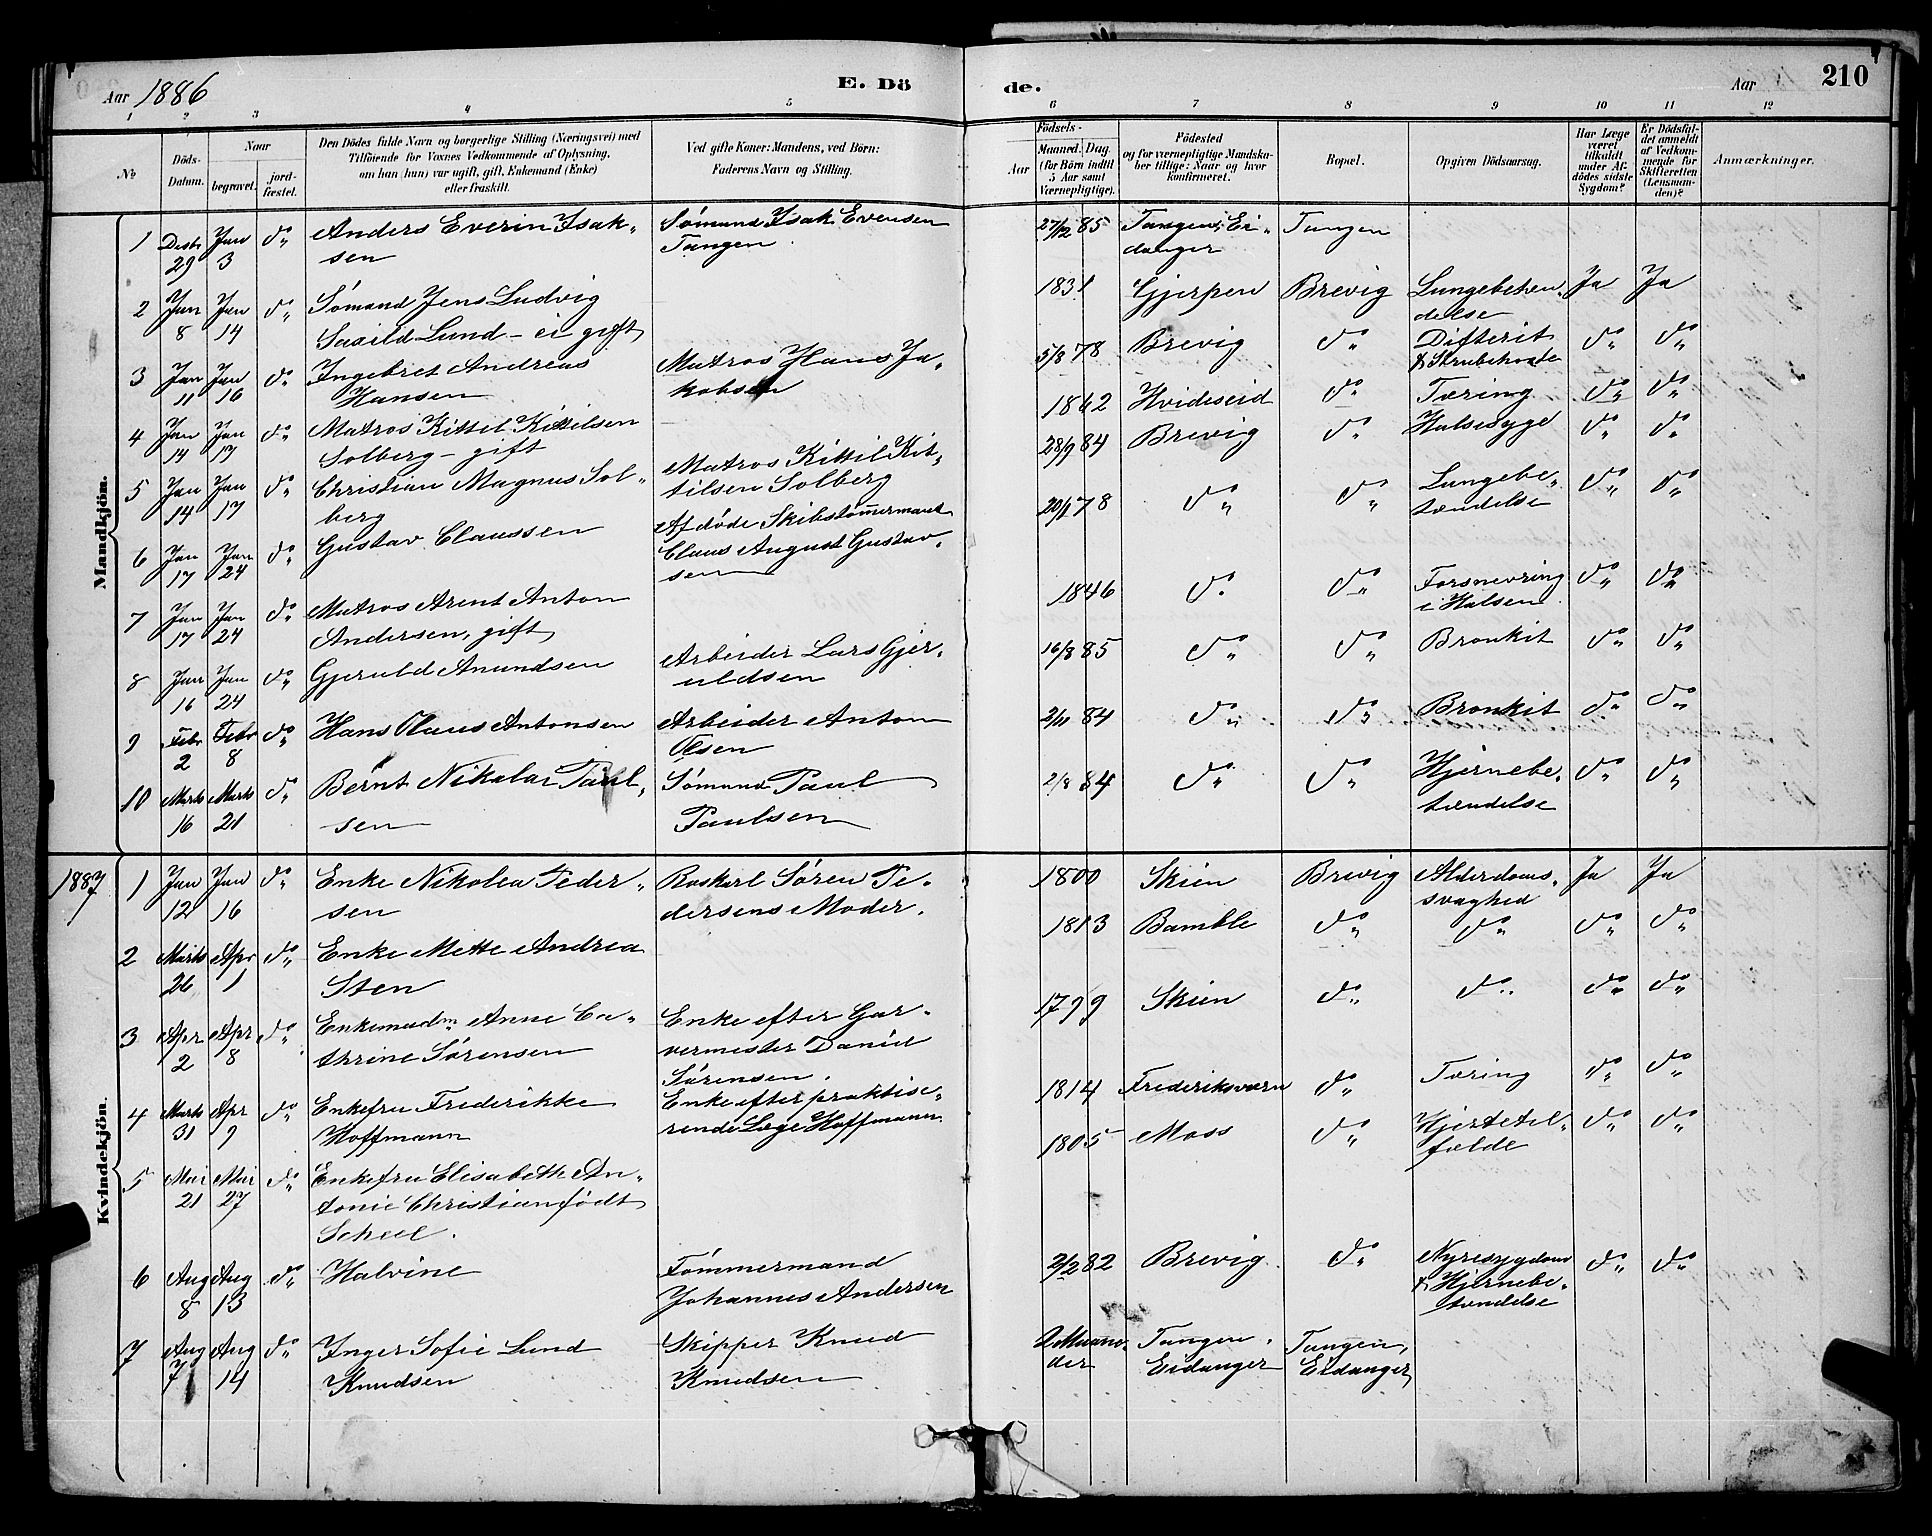 Aar 1886 E. Dö de. Aar 210
1 2 3 4 5 6 7 8 9 10 11 12
No
Döds-Datum.
Naar
begravet.
jord-fæstet.
Den Dödes fulde Navn og borgerlige Stilling (Næringsvei) med
Tilföiende for Voxnes Vedkommende af Oplysning,
om han (hun) var ugift, gift, Enkemand (Enke)
eller fraskilt.
Ved gifte Koner: Mandens, ved Börn:
Faderens Navn og Stilling.
Födsels-
Aar
Maaned. Dag.
(for Börn indtil
5 Aar samt
Værnepligtige).
Födested
og for værnepligtige Mandska-
ber tillige: Naar og hvor
konfirmeret.
Bopæl.
Opgiven Dödsaarsag.
Har Læge
været
tilkaldt
under Af-
dödes sidste
Sygdom?
Er Dödsfal-
det anmeldt
af Vedkom-
mende for
Skifteretten
(Lensman-
den)?
Anmærkninger.
Mandkjön.
1 Desbr 29 Jan 3 do Anders Everin Isak-
sen
Sømand Isak Evensen
Tangen
27/12 85 Tangen, Ei-
danger
Tangen
2 Jan 8 Jan 14 do Sømand Jens Ludvig
Saxild Lund - ei gift
1831 Gjerpen Brevig Lungebeten-
delse
Ja Ja
3 Jan 11 Jan 16 do Ingebret Andreas
Hansen
Matros Hans Ja-
kobsen
5/3 78 Brevig do Difterit
& Strubehoste
do do
4 Jan 14 Jan 17 do Matros Kittil Kittilsen
Solberg - gift
1842 Hvideseid do Tæring do do
5 Jan 14 Jan 17 do Christian Magnus Sol-
berg
Matros Kittil Kit-
tilsen Solberg
28/9 84 Brevig do Halssyge do do
6 Jan 17 Jan 24 do Gustav Claussen
Afdøde Skibstømmermand
Claus August Gustav-
sen
20/1 78 do do Lungebe-
tændelse
do do
7 Jan 17 Jan 24 do Matros Arent Anton
Andersen, gift
1846 do do Forsnevring
i Halsen
do do
8 Jan 16 Jan 24 do Gjeruld Anundsen
Arbeider Lars Gjer-
uldsen
16/8 85 do do Bronkit do do
9 Febr 2 Febr 8 do Hans Olaus Antonsen
Arbeider Anton
Olsen
2/11 84 do do Bronkit do do
10 Marts 16 Marts 21 do Bernt Nikolai Paul-
sen
Sømand Paul
Paulsen
2/8 84 do do Hjernebe-
tændelse
do do
1887
Kvindekjön.
1 Jan 12 Jan 16 do Enke Nikolea Peder-
sen
Baskarl Sören Pe-
dersens Moder.
1800 Skien Brevig Alderdoms-
svaghed
Ja Ja
2 Marts 26 Apr 1 do Enke Mette Andrea
Sten
1813 Bamble do do do do
3 Apr 2 Apr 8 do Enkemadm Anne Ca-
thrine Sørensen
Enke efter Gar-
vermester Daniel
Sørensen.
1799 Skien do do do do
4 Marts 31 Apr 9 do Enkefru Frederikke
Hoffmann
Enke efter praktise-
rende Læge Hoffmann
1814 Frederiksværn do Tæring do do
5 Mai 21 Mai 27 do Enkefru Elisabeth An-
tonie Christian født
Scheel.
1805 Moss do Hjertetil-
fælde
do do
6 Aug 8 Aug 13 do Halvine
Tømmermand
Johannes Andersen
2/2 82 Brevig do Nyresygdom
& Hjernebe-
tændelse
do do
7 Aug 7 Aug 14 do Inger Sofie Lund
Knudsen
Skipper Knud
Knudsen
2 Maane-
der
Tangen,
Eidanger
Tangen,
Eidanger